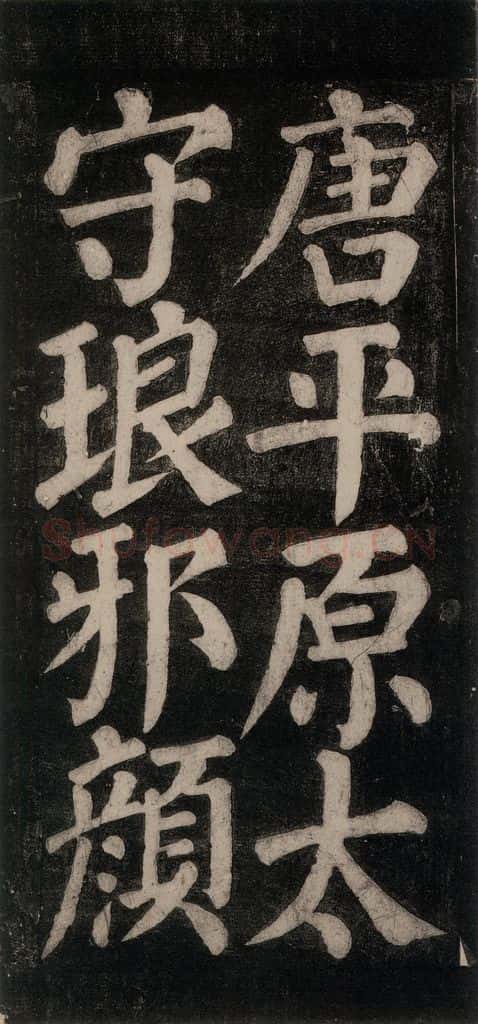 唐平原太
守琅邪顔
Shufawang.CN